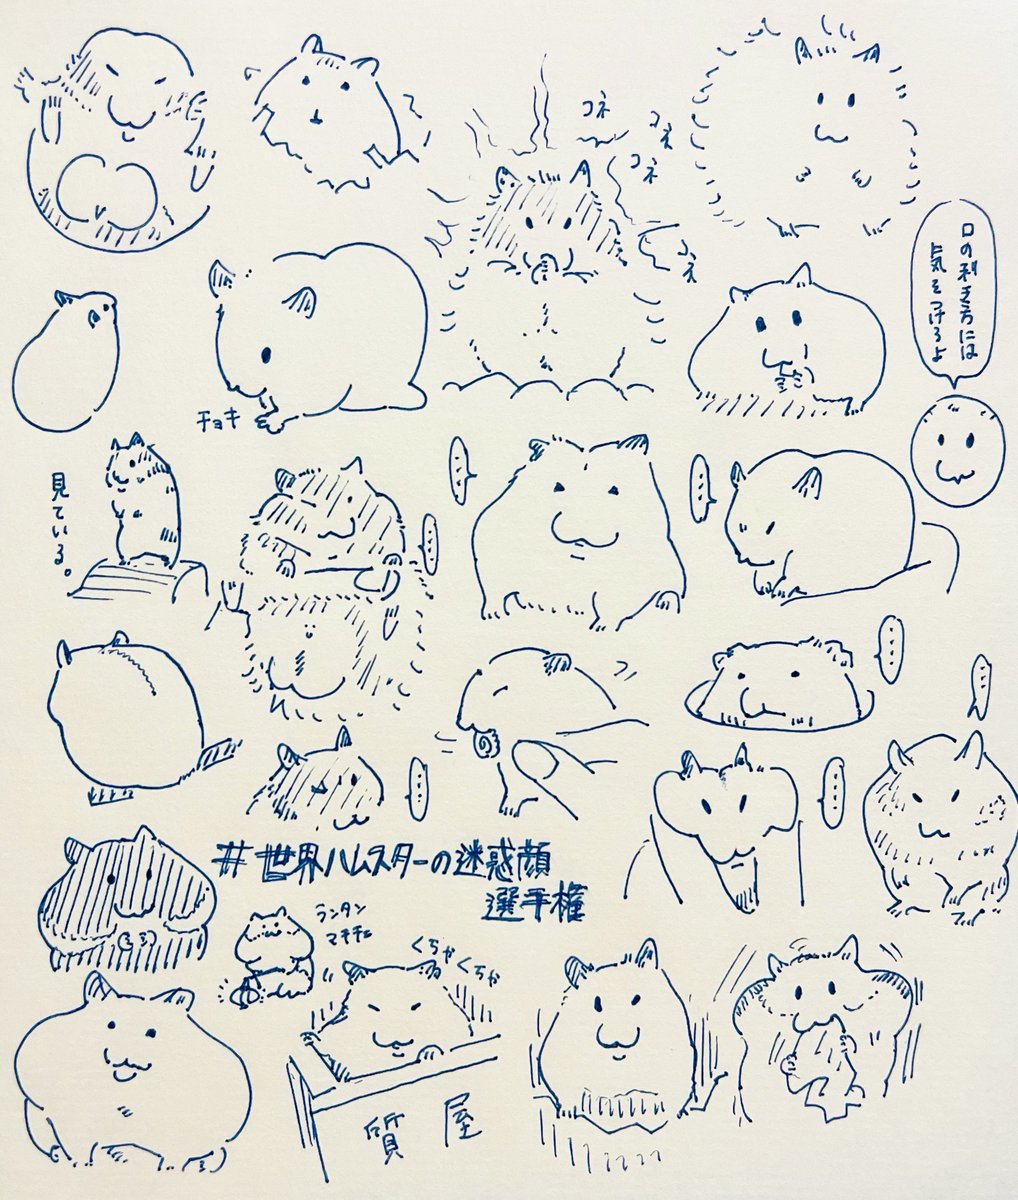 コネ
コネ
コネ
コネ
口の利き方には
気をつけろよ
チョキ
見ている。
#世界ハムスターの迷惑顔
選手権
ランタン
マキチェ
くちゃくちゃ
質屋